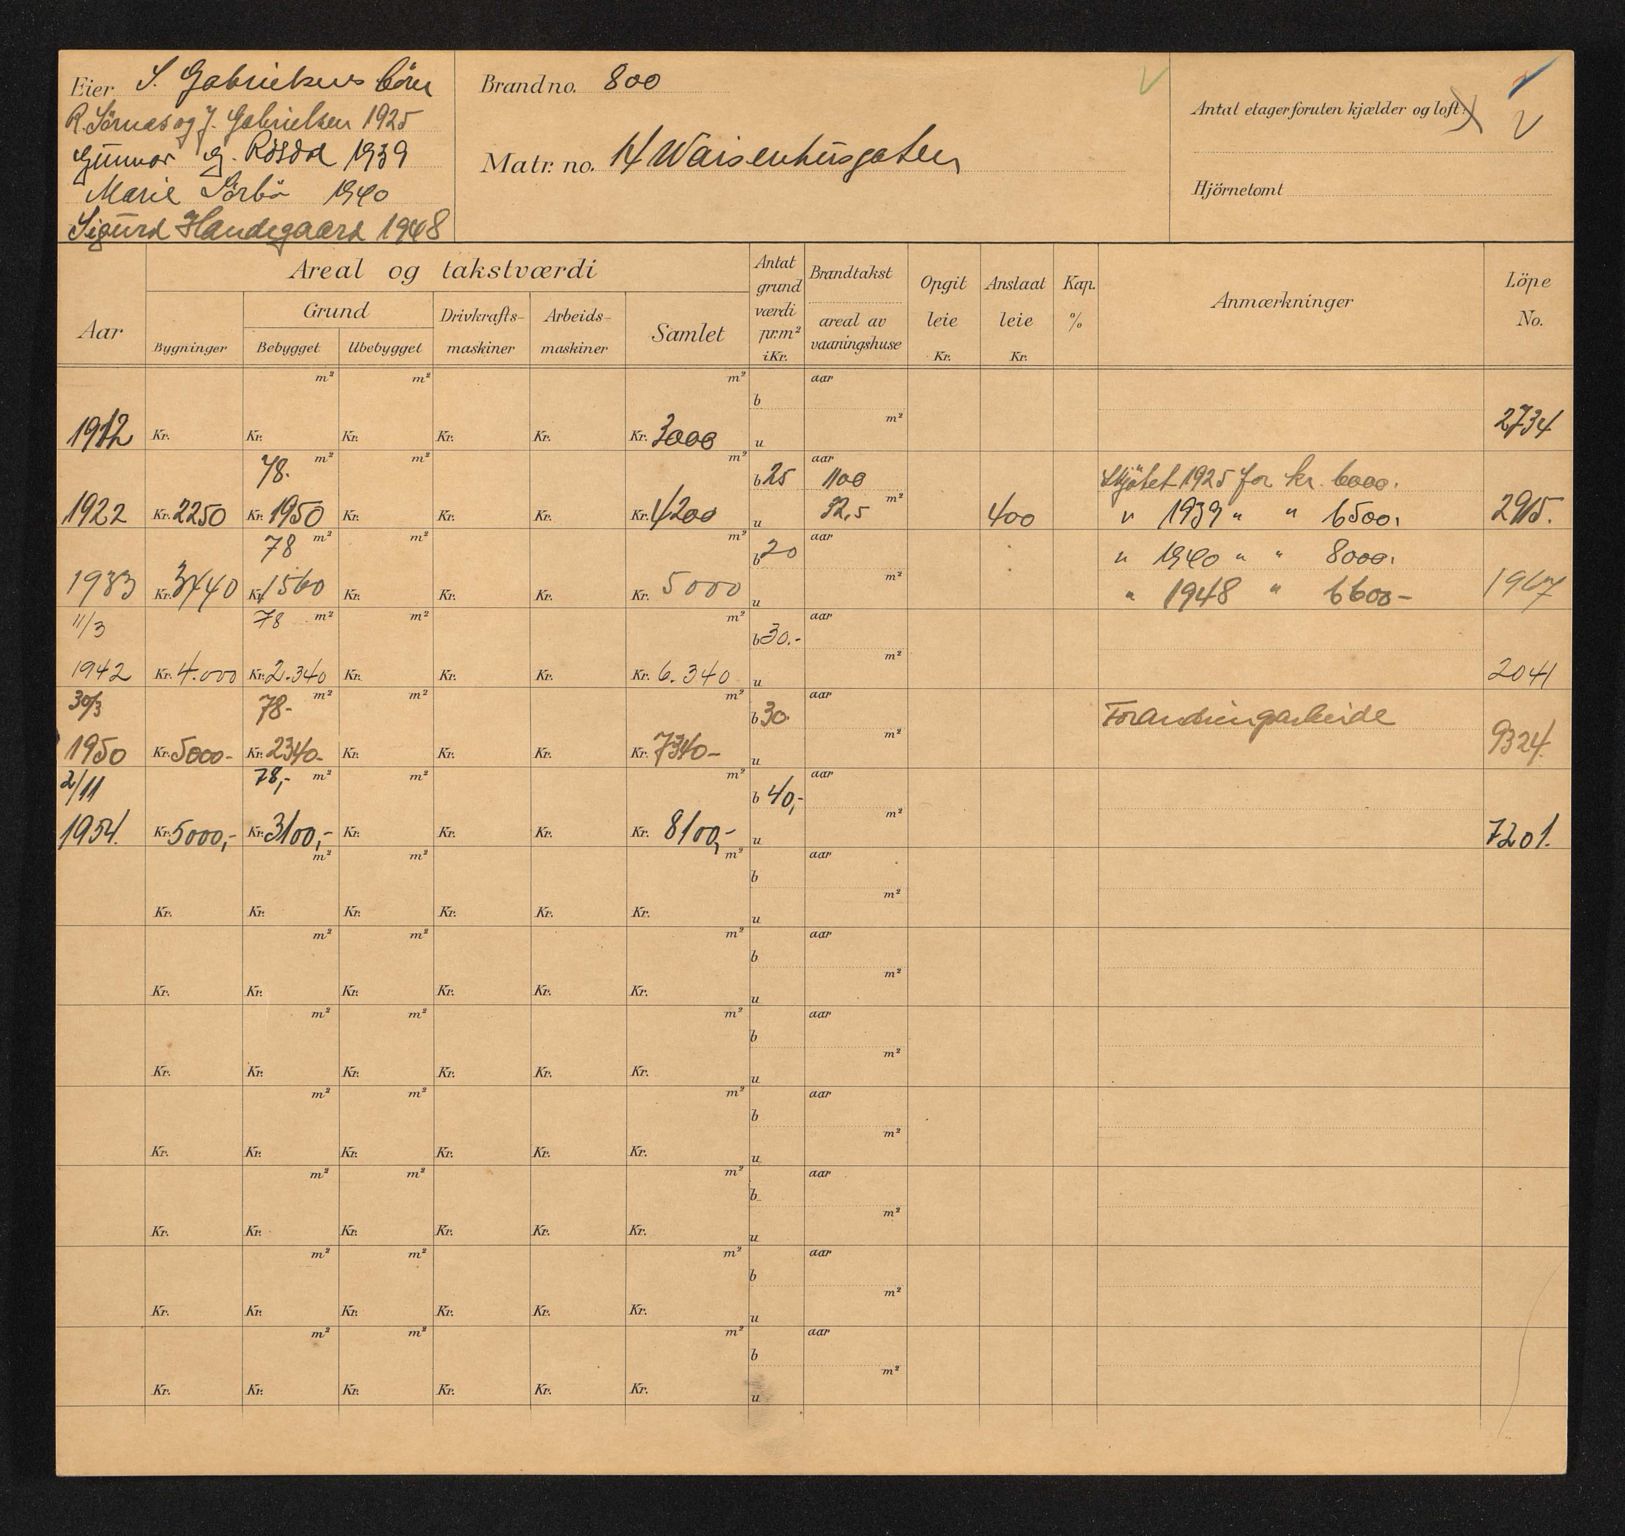 Eier S. Gabrielsens börn
R. Sörnæs og J. Gabrielsen 1925
Gunvor G. Rosdal 1939
Marie Sörbö 1940
Sigurd Handegaard 1948
Brand no. 800
Matr. no. 14 Waisenhusgaten
Antal etager foruten kjælder og loft:
Hjörnetomt
Aar
Areal og takstværdi
Bygninger
Grund
Bebygget Ubebygget
Drivkrafts-
maskiner
Arbeids-
maskiner
Samlet
Antat
grund
værdi
pr.m²
i Kr.
Brandtakst
areal av
vaaningshuse
Opgit
leie
Kr.
Anslaat
leie
Kr.
Kap.
%
Anmærkninger
Löpe
No.
m² m² m² aar
b
m²
1912 Kr. Kr. Kr. Kr. Kr. Kr. 3000 u 2734
78. m² m² m² b 25 aar 1100 Skjötet 1925 for kr. 6000.
1922 Kr. 2250 Kr. 1950 Kr. Kr. Kr. Kr. 4200 u 32,5 m² 400 " 1939 " " 6500. 2915.
78 m² m² m² b 20 aar " 1940 " " 8000.
1933 Kr. 3440 Kr. 1560 Kr. Kr. Kr. Kr. 5000 u m² " 1948 " 6600- 1967
11/3 78 m² m² m² b 30.- aar
1942 Kr. 4.000 Kr. 2.340 Kr. Kr. Kr. Kr. 6.340 u m² 2041
30/3 78- m² m² m² b 30. aar Forandringsarbeide
1950 Kr. 5000- Kr. 2340- Kr. Kr. Kr. Kr. 7340- u m² 9324.
2/11 78,- m² m² m² b 40,- aar
1954. Kr. 5000,- Kr. 3100,- Kr. Kr. Kr. Kr. 8100,- u m² 7201.
m² m² m² b aar
Kr. Kr. Kr. Kr. Kr. Kr. u m²
m² m² m² b aar
Kr. Kr. Kr. Kr. Kr. Kr. u m²
m² m² m² b aar
Kr. Kr. Kr. Kr. Kr. Kr. u m²
m² m² m² b aar
Kr. Kr. Kr. Kr. Kr. Kr. u m²
m² m² m² b aar
Kr. Kr. Kr. Kr. Kr. Kr. u m²
m² m² m² b aar
Kr. Kr. Kr. Kr. Kr. Kr. u m²
m² m² m² b aar
Kr. Kr. Kr. Kr. Kr. Kr. u m²